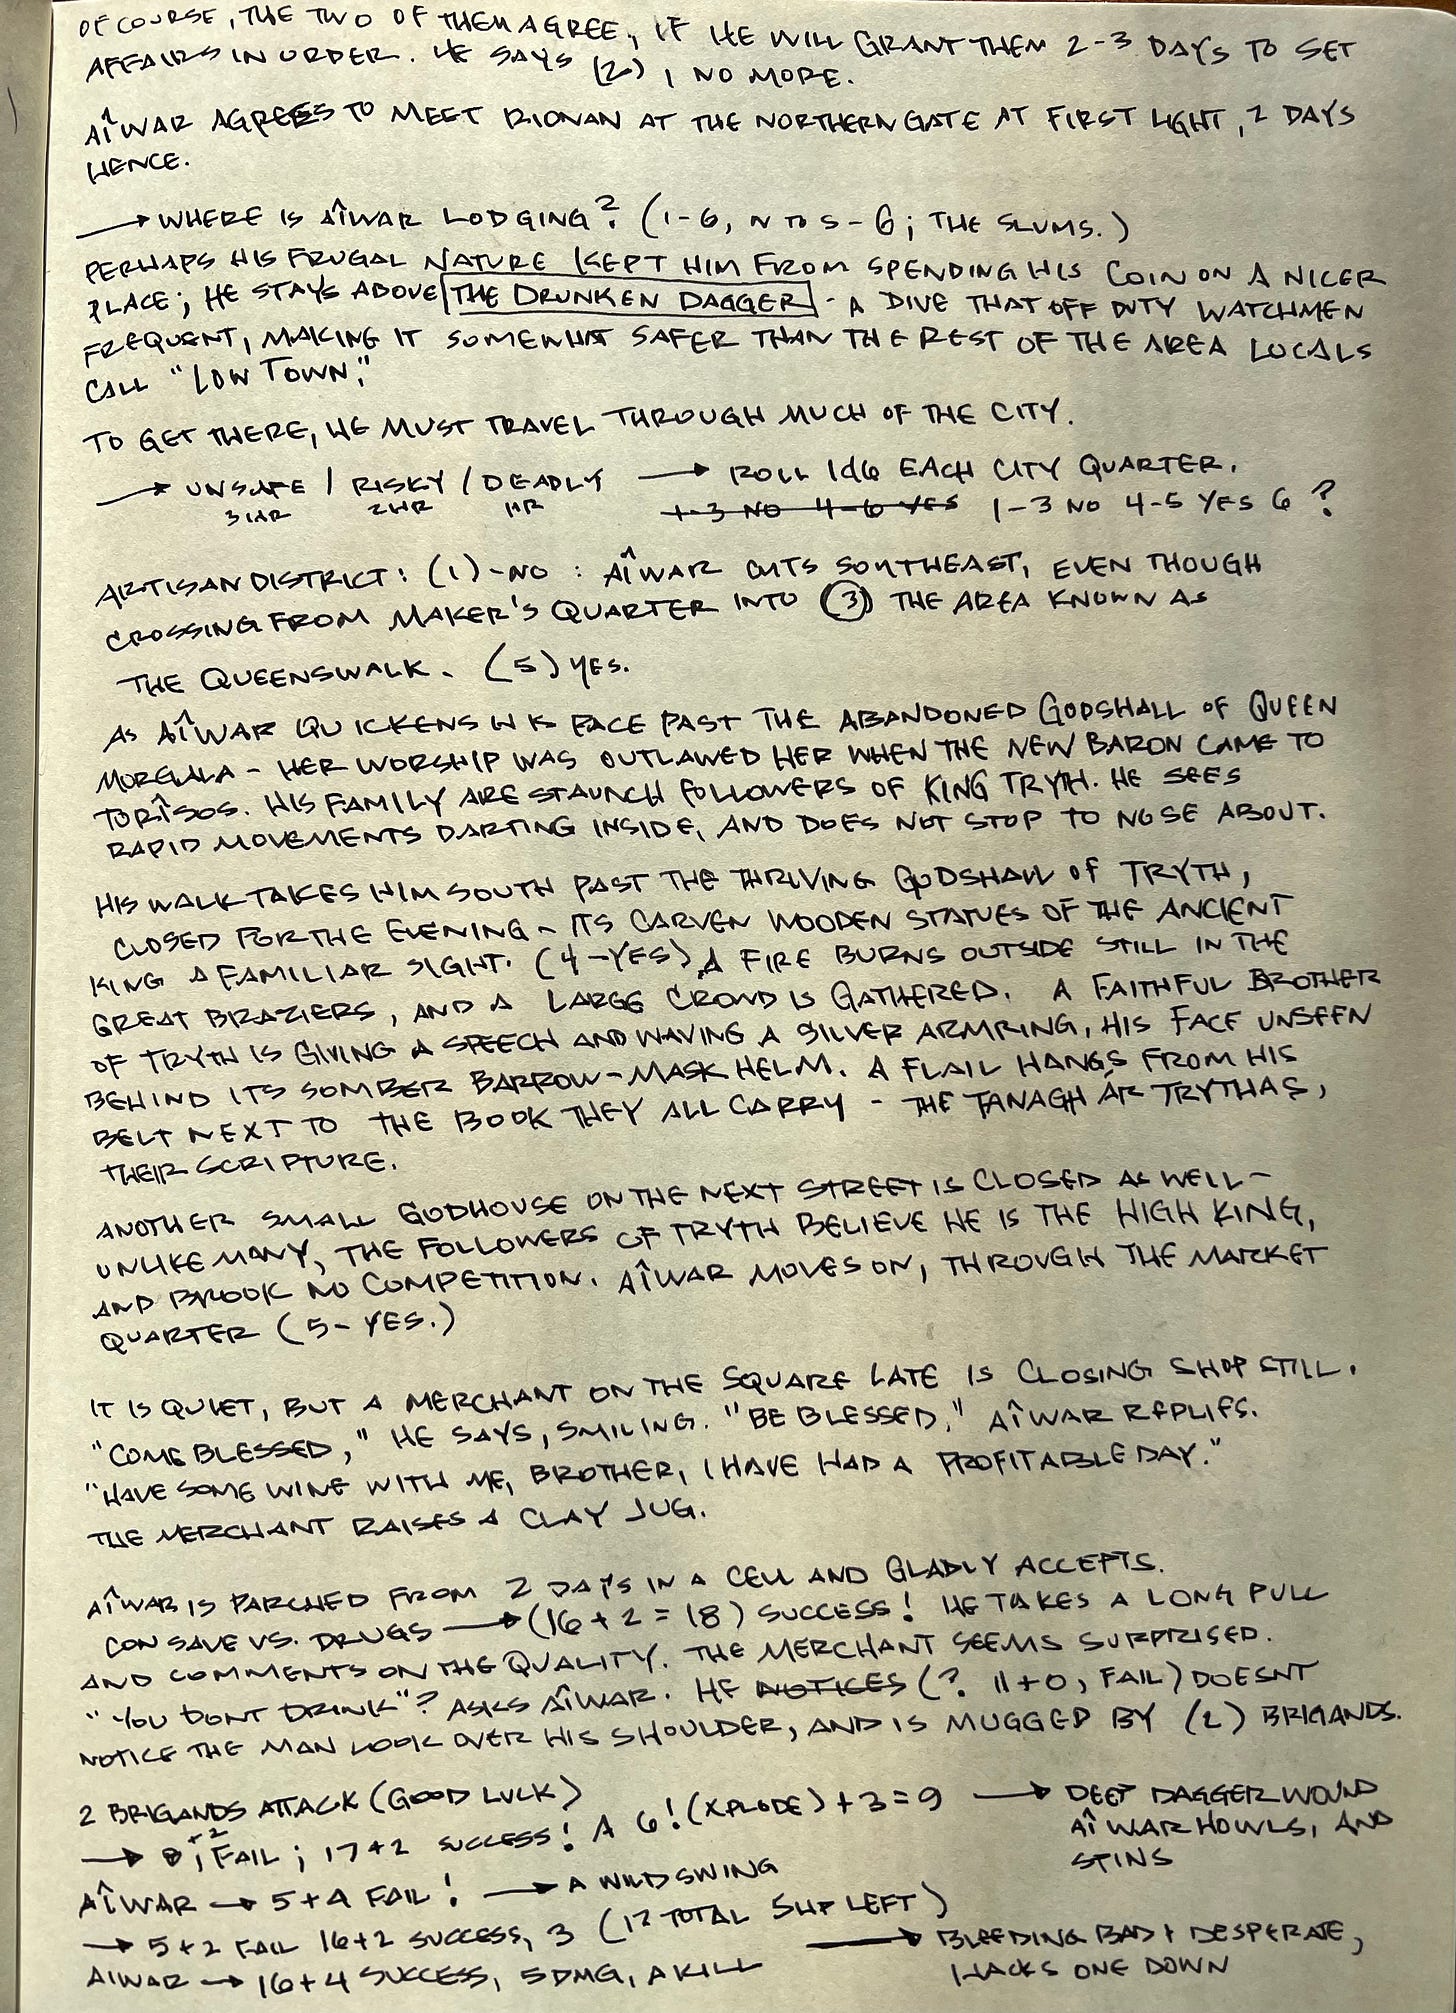 OF COURSE, THE TWO OF THEM AGREE, IF HE WILL GRANT THEM 2-3 DAYS TO SET
AFFAIRS IN ORDER. HE SAYS (2), NO MORE.
AÎWAR AGREES TO MEET RIONAN AT THE NORTHERN GATE AT FIRST LIGHT, 2 DAYS
HENCE.
→ WHERE IS AÎWAR LODGING? (1-6, N TO S - 6; THE SLUMS.)
PERHAPS HIS FRUGAL NATURE KEPT HIM FROM SPENDING HIS COIN ON A NICER
PLACE; HE STAYS ABOVE THE DRUNKEN DAGGER - A DIVE THAT OFF DUTY WATCHMEN
FREQUENT, MAKING IT SOMEWHAT SAFER THAN THE REST OF THE AREA LOCALS
CALL "LOW TOWN."
TO GET THERE, HE MUST TRAVEL THROUGH MUCH OF THE CITY.
→ UNSAFE / RISKY / DEADLY → ROLL 1d6 EACH CITY QUARTER.
3HR 2HR 1HR 1-3 NO 4-6 YES 1-3 NO 4-5 YES 6 ?
ARTISAN DISTRICT: (1)-NO: AÎWAR CUTS SOUTHEAST, EVEN THOUGH
CROSSING FROM MAKER'S QUARTER INTO (3) THE AREA KNOWN AS
THE QUEENSWALK. (5) YES.
AS AÎWAR QUICKENS HIS PACE PAST THE ABANDONED GODSHALL OF QUEEN
MORGALA - HER WORSHIP WAS OUTLAWED HER WHEN THE NEW BARON CAME TO
TORÎSOS. HIS FAMILY ARE STAUNCH FOLLOWERS OF KING TRYTH. HE SEES
RAPID MOVEMENTS DARTING INSIDE, AND DOES NOT STOP TO NOSE ABOUT.
HIS WALK TAKES HIM SOUTH PAST THE THRIVING GODSHALL OF TRYTH,
CLOSED FOR THE EVENING - ITS CARVEN WOODEN STATUES OF THE ANCIENT
KING A FAMILIAR SIGHT. (4-YES) A FIRE BURNS OUTSIDE STILL IN THE
GREAT BRAZIERS, AND A LARGE CROWD IS GATHERED. A FAITHFUL BROTHER
OF TRYTH IS GIVING A SPEECH AND WAVING A SILVER ARMRING, HIS FACE UNSEEN
BEHIND ITS SOMBER BARROW-MASK HELM. A FLAIL HANGS FROM HIS
BELT NEXT TO THE BOOK THEY ALL CARRY - THE TANAGH ÁR TRYTHAS,
THEIR SCRIPTURE.
ANOTHER SMALL GODHOUSE ON THE NEXT STREET IS CLOSED AS WELL -
UNLIKE MANY, THE FOLLOWERS OF TRYTH BELIEVE HE IS THE HIGH KING,
AND BROOK NO COMPETITION. AÎWAR MOVES ON, THROUGH THE MARKET
QUARTER (5-YES.)
IT IS QUIET, BUT A MERCHANT ON THE SQUARE LATE IS CLOSING SHOP STILL.
"COME BLESSED," HE SAYS, SMILING. "BE BLESSED," AÎWAR REPLIES.
"HAVE SOME WINE WITH ME, BROTHER, I HAVE HAD A PROFITABLE DAY."
THE MERCHANT RAISES A CLAY JUG.
AÎWAR IS PARCHED FROM 2 DAYS IN A CELL AND GLADLY ACCEPTS.
CON SAVE VS. DRUGS → (16+2=18) SUCCESS! HE TAKES A LONG PULL
AND COMMENTS ON THE QUALITY. THE MERCHANT SEEMS SURPRISED.
"YOU DONT DRINK"? ASKS AÎWAR. HE NOTICES (? 11+0, FAIL) DOESNT
NOTICE THE MAN LOOK OVER HIS SHOULDER, AND IS MUGGED BY (2) BRIGANDS.
2 BRIGANDS ATTACK (GOOD LUCK)
→ 8+2, FAIL; 17+2 SUCCESS! A 6! (XPLODE) +3=9 → DEEP DAGGER WOUND
AÎWAR HOWLS, AND
SPINS
AÎWAR → 5+4 FAIL! → A WILD SWING
→ 5+2 FAIL 16+2 SUCCESS, 3 (12 TOTAL 5HP LEFT)
→ BLEEDING BAD + DESPERATE,
AIWAR → 16+4 SUCCESS, 5DMG, A KILL
HACKS ONE DOWN